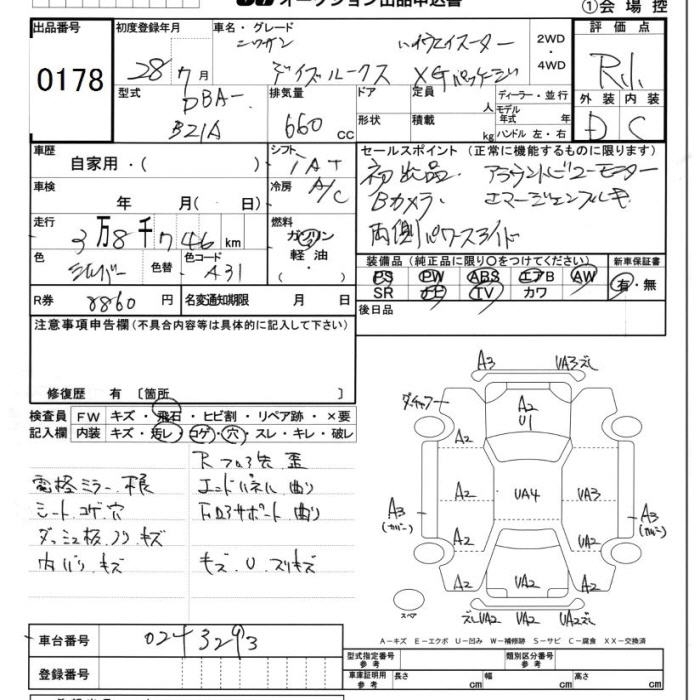 オークション出品申込書
①会場控
出品番号
0178
初度登録年月
28年 7月
車名・グレード
ニッサン ハイウェイスター
デイズルークス X Gパッケージ
2WD
・
4WD
評価点
R1
外装 内装
D C
型式
DBA-
B21A
排気量
660 cc
ドア
形状
定員 人
積載 kg
ディーラー・並行
モデル年式 年
ハンドル 左・右
車歴
自家用・( )
シフト
IAT
冷房
A/C
車検
年 月( 日)
走行
3万8千746km
燃料
ガソリン
軽油
色
シルバー
色替
色コード
A31
R券
8860円
名変通知期限 月 日
セールスポイント (正常に機能するものに限ります)
初出品. アラウンドビューモニター
Bカメラ. エマージェンブレーキ
両側パワースライド
装備品(純正品に限り○をつけてください)
PS PW ABS エアB AW
SR ナビ TV カワ
新車保証書
有・無
後日品
注意事項申告欄(不具合内容等は具体的に記入して下さい)
修復歴 有 〔箇所 〕
検査員記入欄
FW キズ・飛石・ヒビ割・リペア跡・×要
内装 キズ・汚レ・コゲ・穴・スレ・キレ・破レ
電格ミラー.根
シート.コゲ.穴
ダッシュ板.ノリ.キズ
内バリ.キズ
Rフロア先 歪
エンドパネル 曲り
キズ.U.スリキズ
A3
UA3ズレ
A2
U1
A2
A2
A2
A2
UA4
A2
UA3
UA2
A2
UA2
A3
(カバー)
A3
(カバー)
UA2
UA2
UA2ズレ
スペア
A－キズ E－エクボ U－凹み W－補修跡 S－サビ C－腐食 XX－交換済
車台番号
0243293
登録番号
型式指定番号
参考
類別区分番号
参考
車庫証明用
参考
長さ cm
幅 cm
高さ cm